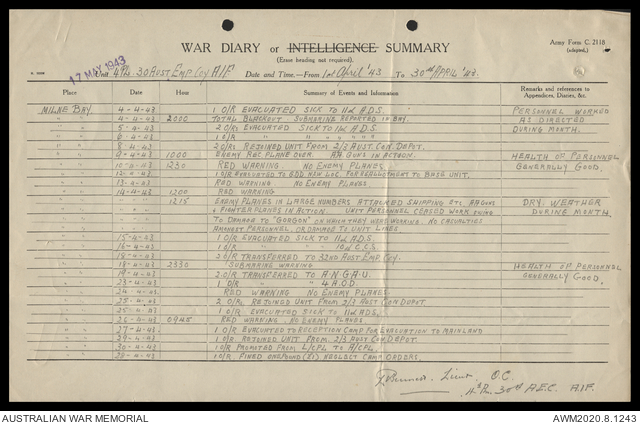 17 MAY 1943
WAR DIARY or INTELLIGENCE SUMMARY
(Erase heading not required).
Army Form C. 2118
(adapted.)
Unit 4 Ptn 30 Aust Emp. Coy A/F
Date and Time.—From 1st April '43 To 30th April '43.
Place Date Hour Summary of Events and Information Remarks and references to
Appendices, Diaries, &c.
MILNE BAY. 4-4-43 1 O/R EVACUATED SICK TO 11th A.D.S. PERSONNEL WORKED
" " 4-4-43 2000 TOTAL BLACKOUT SUBMARINE REPORTED IN BAY. AS DIRECTED
" " 5-4-43 2 O/Rs EVACUATED SICK TO 11th A.D.S. DURING MONTH.
" " 6-4-43 1 O/R " " " "
" " 8-4-43 2 O/Rs REJOINED UNIT FROM 2/3 AUST. CON. DEPOT.
" " 9-4-43 1000 ENEMY REC. PLANE OVER. AA GUNS IN ACTION. HEALTH OF PERSONNEL
" " 10-4-43 1230 RED WARNING NO ENEMY PLANES. GENERALLY GOOD.
" " 12-4-43 1 O/R EVACUATED TO FOR REALLOTMENT TO BASE UNIT.
" " 13-4-43 RED WARNING NO ENEMY PLANES.
" " 14-4-43 1200 RED WARNING
" " 1215 ENEMY PLANES IN LARGE NUMBERS ATTACKED SHIPPING ETC AA GUNS DRY. WEATHER
& FIGHTER PLANES IN ACTION. UNIT PERSONNEL CEASED WORK OWING DURING MONTH.
TO DAMAGE TO "GORGON" ON WHICH THEY WERE WORKING. NO CASUALTIES
AMONGST PERSONNEL, OR DAMAGE TO UNIT LINES
" " 15-4-43 1 O/R EVACUATED SICK TO 11th A.D.S.
" " 16-4-43 1 O/R " " 10th C.C.S.
" " 18-4-43 O/R TRANSFERRED TO 32ND AUST EMP. COY.
" " 18-4-43 2330 SUBMARINE WARNING HEALTH OF PERSONNEL
" " 19-4-43 2 O/R TRANSFERRED TO A.N.G.A.U. GENERALLY GOOD.
" " 23-4-43 1 O/R " " 4 A.O.D.
" " 24-4-43 RED WARNING NO ENEMY PLANES.
" " 25-4-43 2 O/Rs REJOINED UNIT FROM 2/3 AUST CON DEPOT.
" " 25-4-43 1 O/R EVACUATED SICK TO 11th ADS.
" " 26-4-43 0945 RED WARNING NO ENEMY PLANES
" " 27-4-43 1 O/R EVACUATED TO RECEPTION CAMP FOR EVACUATION TO MAINLAND
" " 29-4-43 1 O/R REJOINED UNIT FROM 2/3 AUST CON. DEPOT.
" " 30-4-43 1 O/R PROMOTED FROM L/CPL TO A/CPL.
" " 28-4-43 1 O/R FINED ONE POUND (£1) NEGLECT CAMP ORDERS.
Lieut. O.C.
4th Ptn 30th A.E.C. A.I.F.
AUSTRALIAN WAR MEMORIAL
AWM2020.8.1243